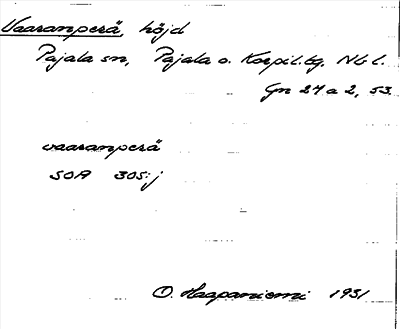 Vaaranperä, höjd
Pajala sn, Pajala o. Korpil. tg. Nb l.
Gn 27 a 2, 53.
vaaranperä
SOA 305:j
O. Haapaniemi 1931